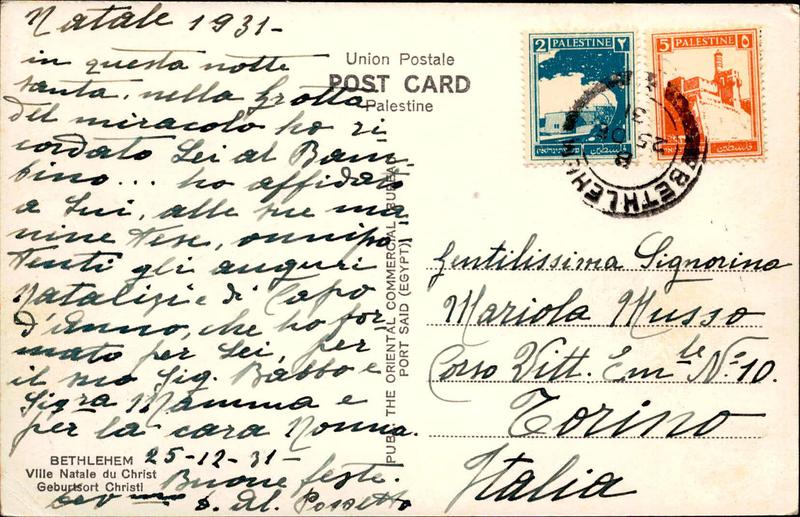 Natale 1931-
in questa notte
santa, nella Grotta
del miracolo ho ri
cordato Lei al Bam-
bino... ho affidato
a Lui, alle sue ma
nine tese, onnipo
tenti gli auguri
natalizi e di Capo
d'anno, che ho for
mato per Lei, per
il suo Sig. Babbo e
Sig.ra Mamma e
per la cara Nonna.
25-12-31-
Buone feste.
dev.mo
Union Postale
POST CARD
Palestine
PUB. THE ORIENTAL COMMERCIAL BUREAU
PORT SAID (EGYPT)
BETHLEHEM
Ville Natale du Christ
Geburtsort Christi
2 PALESTINE ٢
فلسطين
5 PALESTINE ٥
فلسطين
BETHLEHEM
25 DE
31
Gentilissima Signorina
Mariola Musso
Corso Vitt. Em.le N.º 10.
Torino
Italia